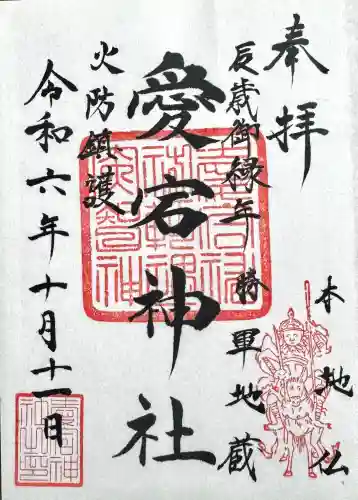 奉拝
本地仏
辰歳御縁年 勝軍地蔵
愛宕神社
火防鎮護
令和六年十月十一日